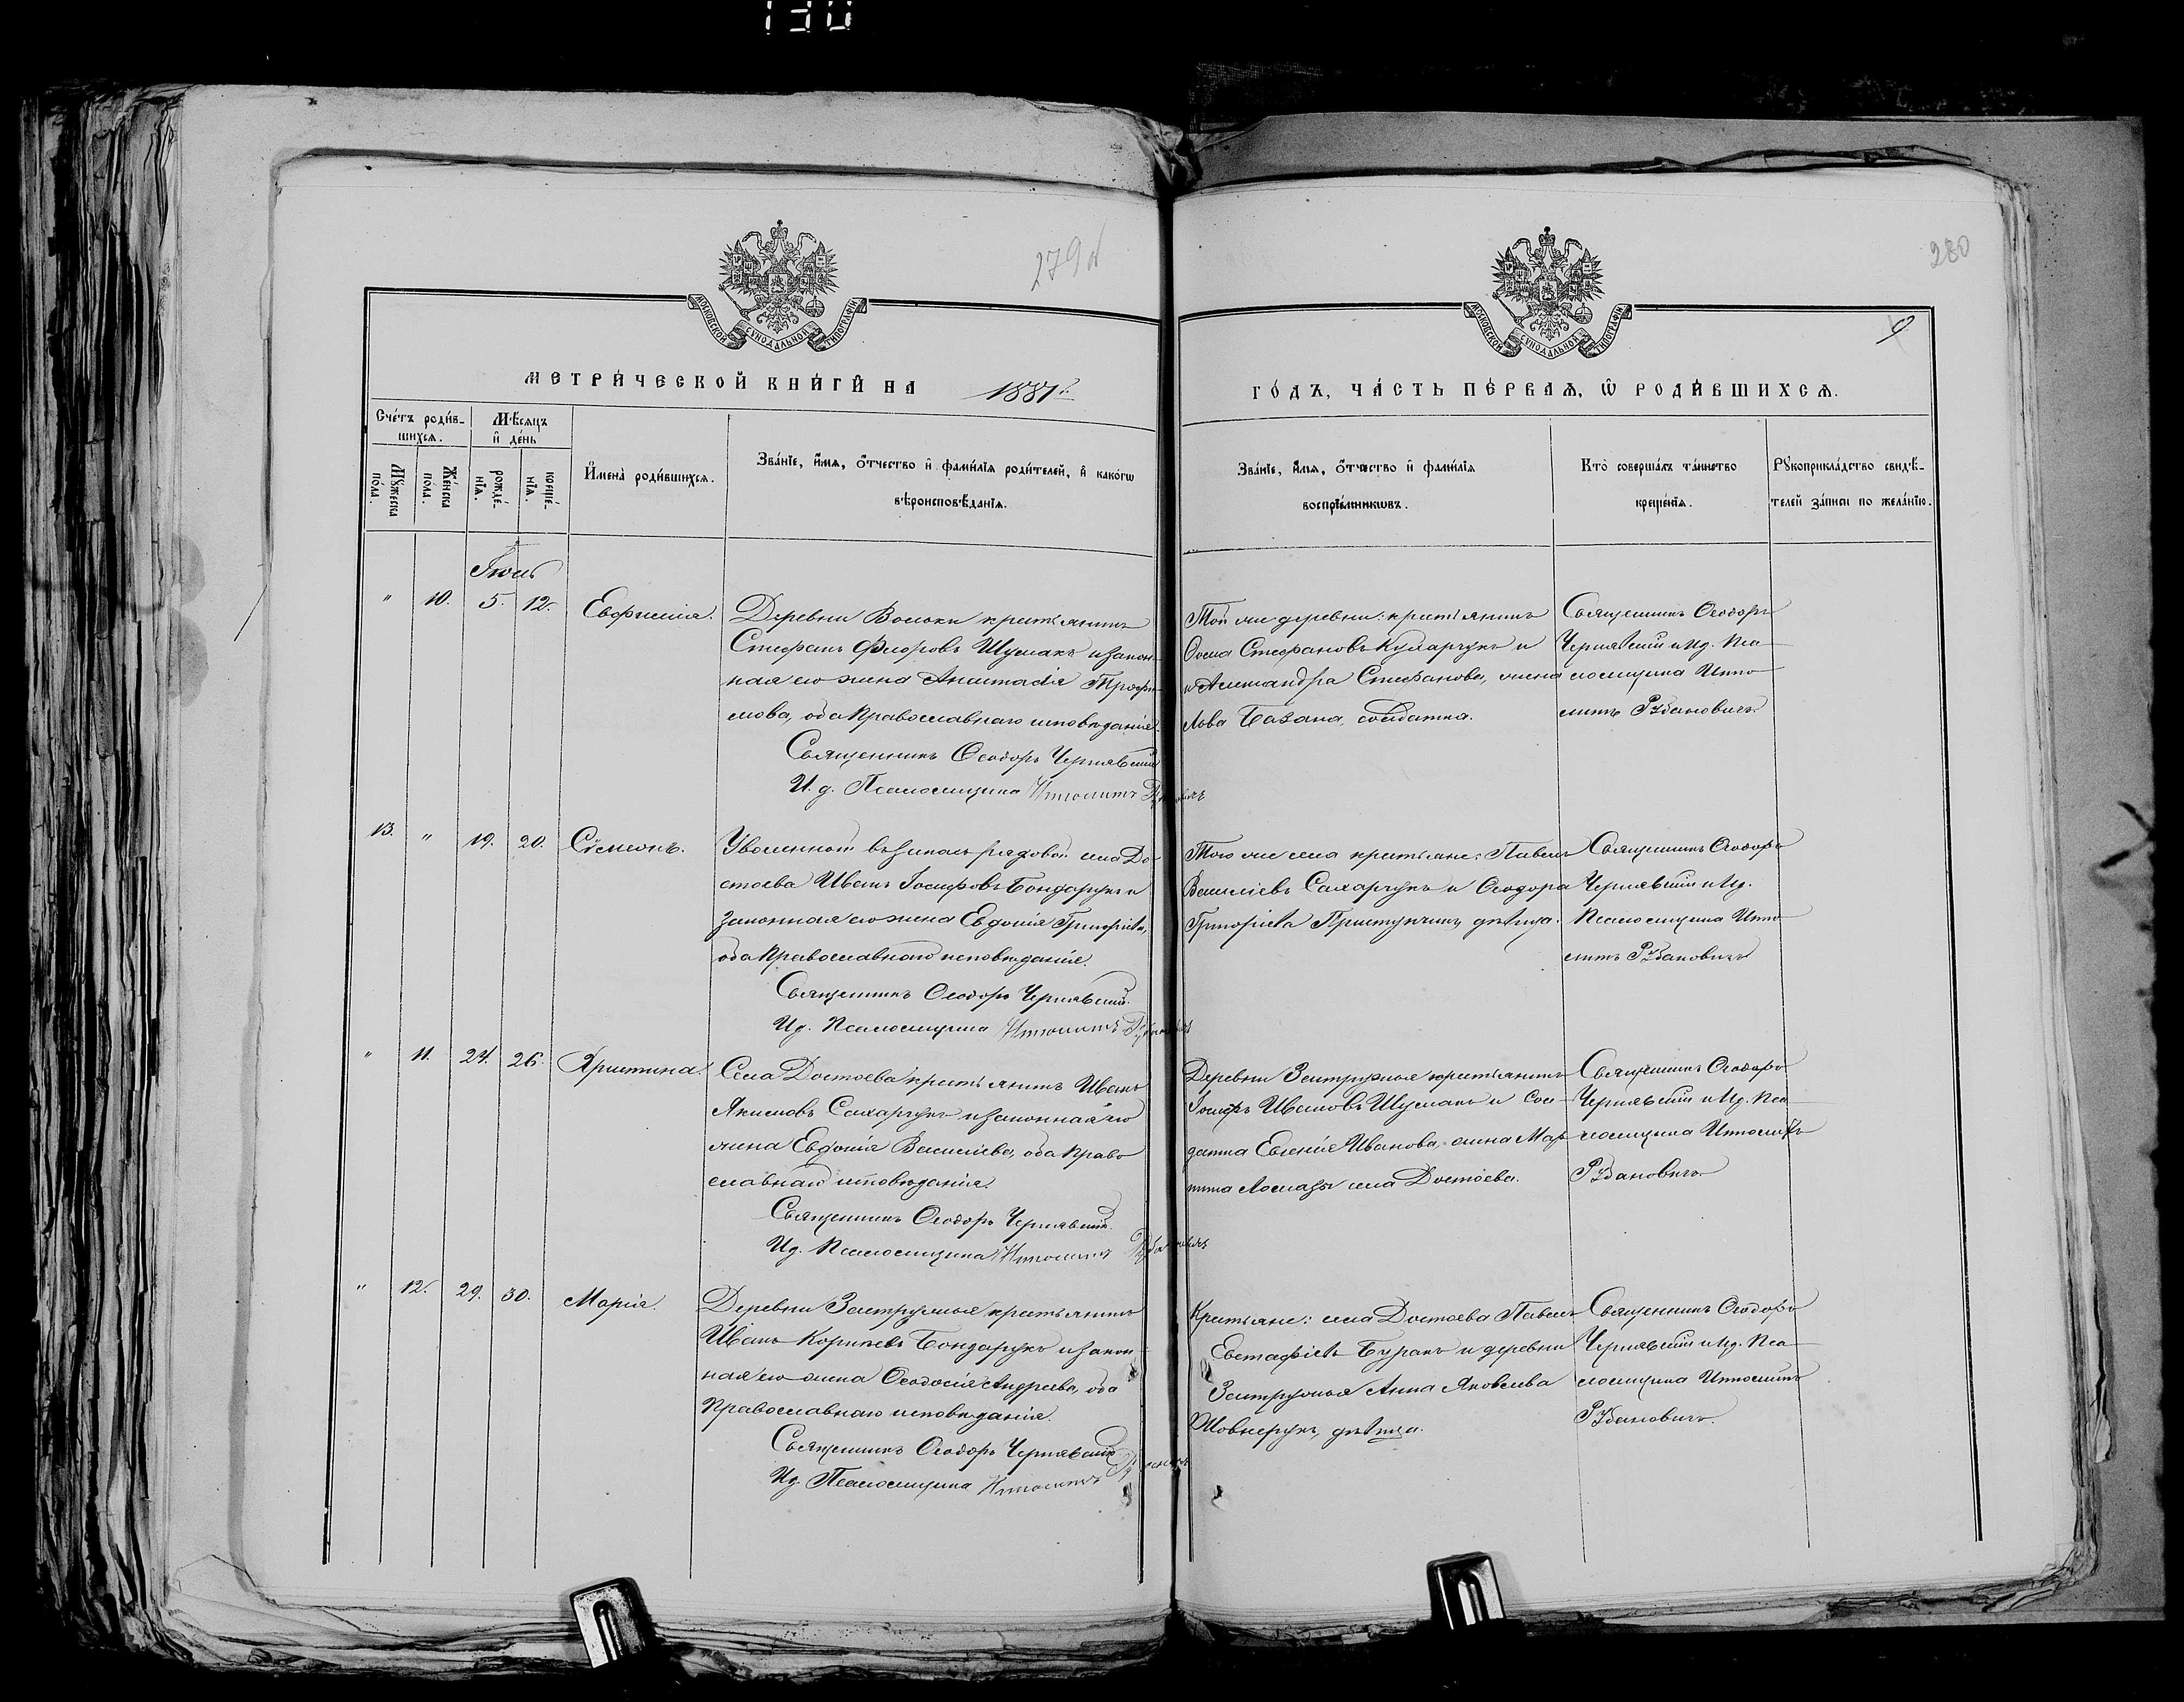 130
279 об
280
МОСКОВСКОЙ СУНОДАЛЬНОЙ ТИПОГРАФІИ
МОСКОВСКОЙ СУНОДАЛЬНОЙ ТИПОГРАФІИ
МЕТРИ́ЧЕСКОЙ КНИ́ГИ НА 1881 г.
ГО́ДЪ, ЧА́СТЬ ПЕ́РВАѦ, Ѿ РОДИ́ВШИХСѦ.
Сче́тъ роди́в-
шихсѧ.
Мѣ́сѧцъ
и де́нь
Мꙋ́жеска
по́ла.
Же́нска
по́ла.
рожде́-
нїѧ.
креще́-
нїѧ.
Имена̀ роди́вшихсѧ.
Зва́нїе, и́мѧ, ѻ́тчество и фами́лїѧ роди́телей, и како́гѡ
вѣроисповѣ́данїѧ.
Зва́нїе, и́мѧ, ѻ́тчество и фами́лїѧ
воспрїе́мникѡвъ.
Кто̀ соверша́лъ та́инство
креще́нїѧ.
Рꙋкоприкла́дство свидѣ́-
телей за́писи по жела́нїю.
Іюль
" 10. 5. 12. Евфимія.
Деревни Вольки крестьянинъ
Стефанъ Флоровъ Шуманъ и закон-
ная его жена Анастасія Трофи-
мова, оба Православнаго исповѣданія.
Священникъ Ѳеодоръ Чернявскій
И. д. Псаломщика Ипполитъ Рубановичъ
Той же деревни: крестьянинъ
Ѳома Стефановъ Кухарчукъ и
и Александра Стефанова, жена
Льва Базана, солдатка.
Священникъ Ѳеодоръ
Чернявскій и И.д. Пса-
ломщика Иппо-
литъ Рубановичъ
13. " 19. 20. Сѵмеонъ.
Уволенный въ запасъ рядовой села До-
стоева Иванъ Іосифовъ Бондарукъ и
законная его жена Евдокія Григорьева,
оба Православнаго исповѣданія.
Священникъ Ѳеодоръ Чернявскій.
И.д. Псаломщика Ипполитъ Рубановичъ
Того же села крестьяне: Павелъ
Василіевъ Сахарчукъ и Ѳеодора
Григорьева Приступчикъ дѣвица.
Священникъ Ѳеодоръ
Чернявскій и И.д.
Псаломщика Иппо-
литъ Рубановичъ
" 11. 24. 26. Христина.
Села Достоева крестьянинъ Иванъ
Якимовъ Сахарчукъ и законная его
жена Евдокія Василіева, оба Право-
славнаго исповѣданія.
Священникъ Ѳеодоръ Чернявскій.
И.д. Псаломщика Ипполитъ Рубановичъ
Деревни Застружья крестьянинъ
Іосифъ Ивановъ Шуманъ и сол-
датка Евгенія Иванова, жена Мар-
тина села Достоева.
Священникъ Ѳеодоръ
Чернявскій и И.д. Пса-
ломщика Ипполитъ
Рубановичъ.
" 12. 29. 30. Марія.
Деревни Застружья крестьянинъ
Иванъ Корнѣевъ Бондарукъ и закон-
ная его жена Ѳеодосія Андреева, оба
Православнаго исповѣданія.
Священникъ Ѳеодоръ Чернявскій
И.д. Псаломщика Ипполитъ Рубановичъ
Крестьяне: села Достоева Павелъ
Евстафіевъ Буракъ и деревни
Застружья Анна Яковлева
Шовкерукъ, дѣвица.
Священникъ Ѳеодоръ
Чернявскій и И.д. Пса-
ломщика Ипполитъ
Рубановичъ.